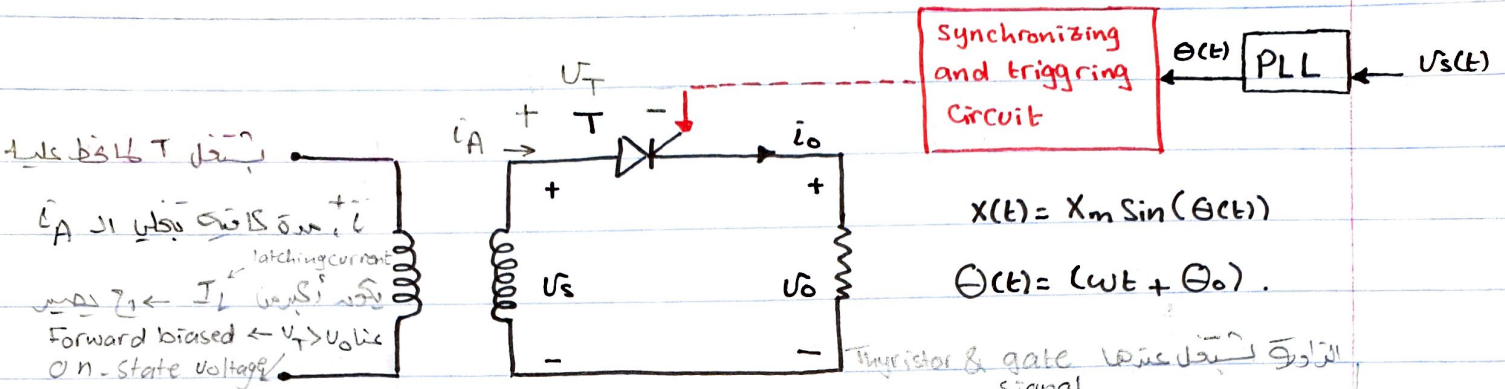 Synchronizing
and triggring
Circuit
θ(t)
PLL
Vs(t)
VT
+ T -
iA
io
بشتغل T لما خط عليه
مدة كافية بخلي ال iA
latching current
يكون أكبر من IL ← رح يصير
Forward biased ← VT > Vo عنا
On-State voltage
+
Vs
-
+
Vo
-
X(t) = Xm Sin(θ(t))
θ(t) = (ωt + θo).
الزاوية لشتغل عندها Thyristor & gate
signal